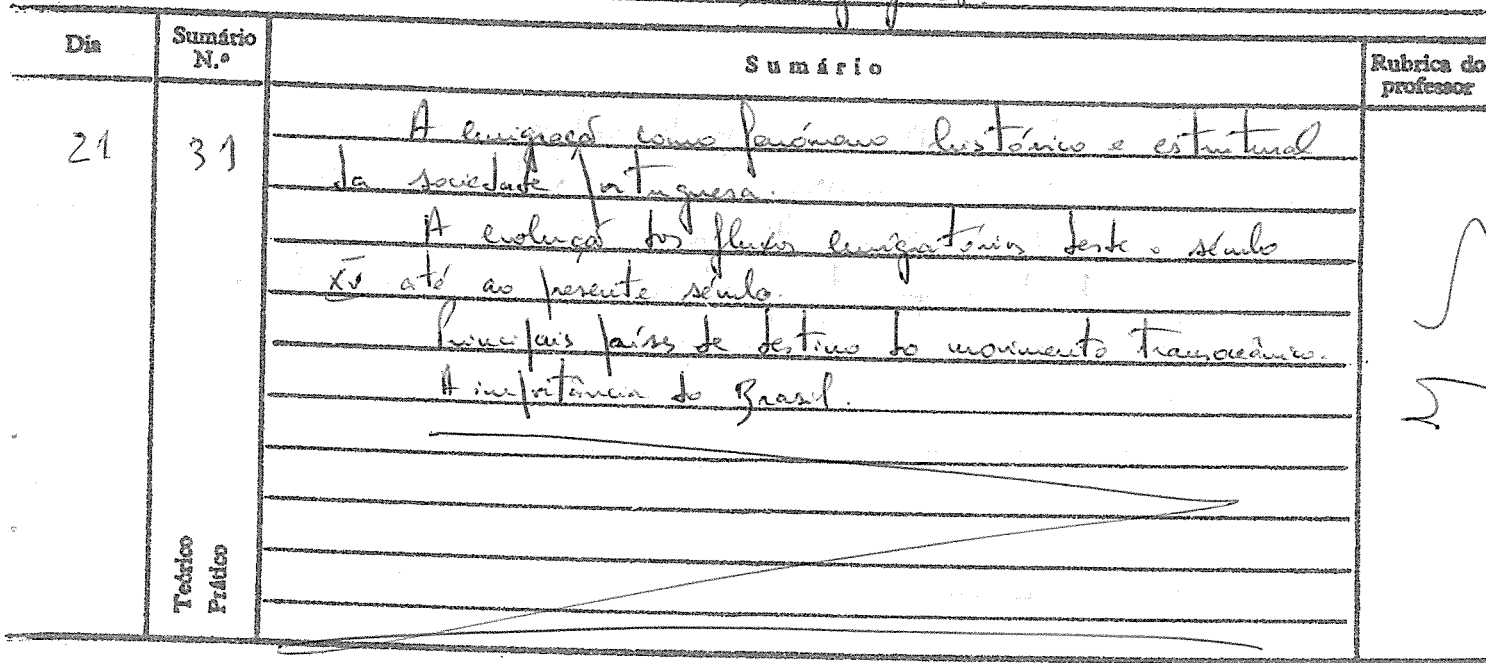 Dia
Sumário N.º
Sumário
Rubrica do professor
21
31
A emigração como fenómeno histórico e estrutural
da sociedade portuguesa.
A evolução dos fluxos emigratórios desde o século
XV até ao presente século.
Principais países de destino do movimento transoceânico.
A importância do Brasil.
Teórico
Prático